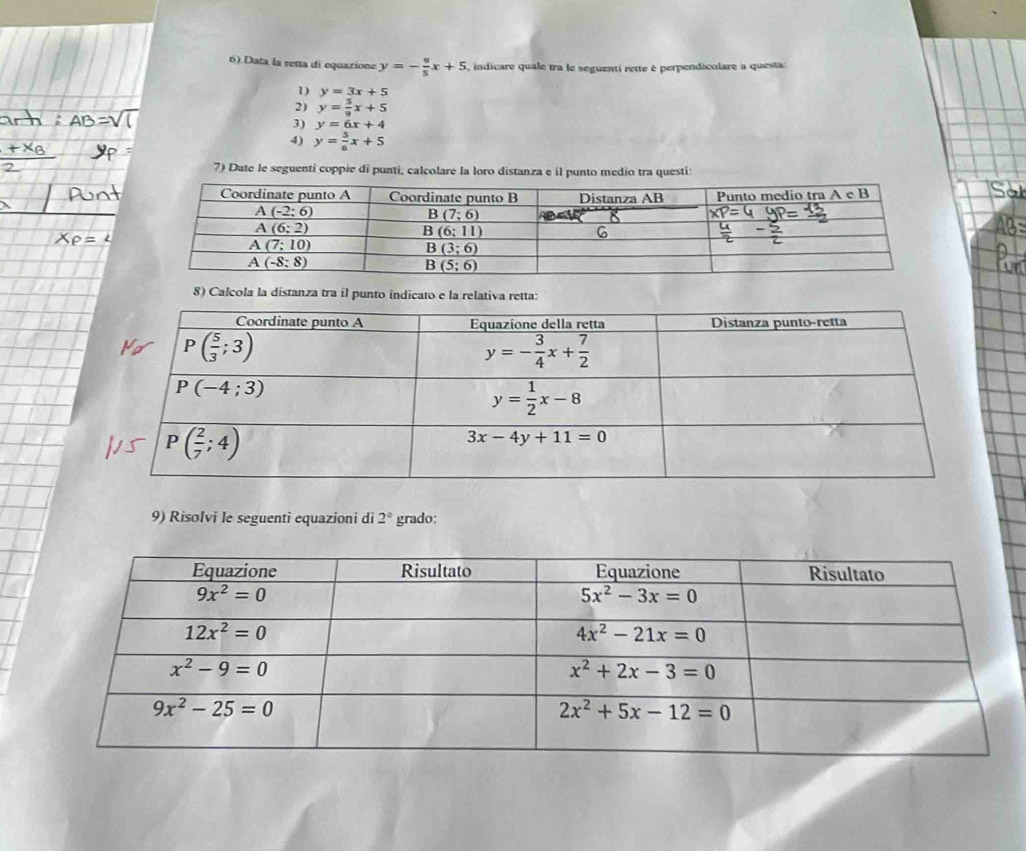 6) Data la retta di equazione y = -9/5 x + 5, indicare quale tra le seguenti rette è perpendicolare a questa:
1) y = 3x + 5
2) y = 5/9 x + 5
3) y = 6x + 4
4) y = 5/6 x + 5
: AB = √
+ XB yp =
2
Punt
xp =
7) Date le seguenti coppie di punti, calcolare la loro distanza e il punto medio tra questi:
Coordinate punto A Coordinate punto B Distanza AB Punto medio tra A e B
A (-2; 6) B (7; 6) 8 xP = 4 yP = 13/2
A (6; 2) B (6; 11) 6 4/2 - 5/2
A (7; 10) B (3; 6)
A (-8; 8) B (5; 6)
AB =
Punt
8) Calcola la distanza tra il punto indicato e la relativa retta:
Coordinate punto A Equazione della retta Distanza punto-retta
P (5/3 ; 3) y = -3/4 x + 7/2
P (-4 ; 3) y = 1/2 x - 8
P (2/7 ; 4) 3x - 4y + 11 = 0
9) Risolvi le seguenti equazioni di 2° grado:
Equazione Risultato Equazione Risultato
9x² = 0 5x² - 3x = 0
12x² = 0 4x² - 21x = 0
x² - 9 = 0 x² + 2x - 3 = 0
9x² - 25 = 0 2x² + 5x - 12 = 0